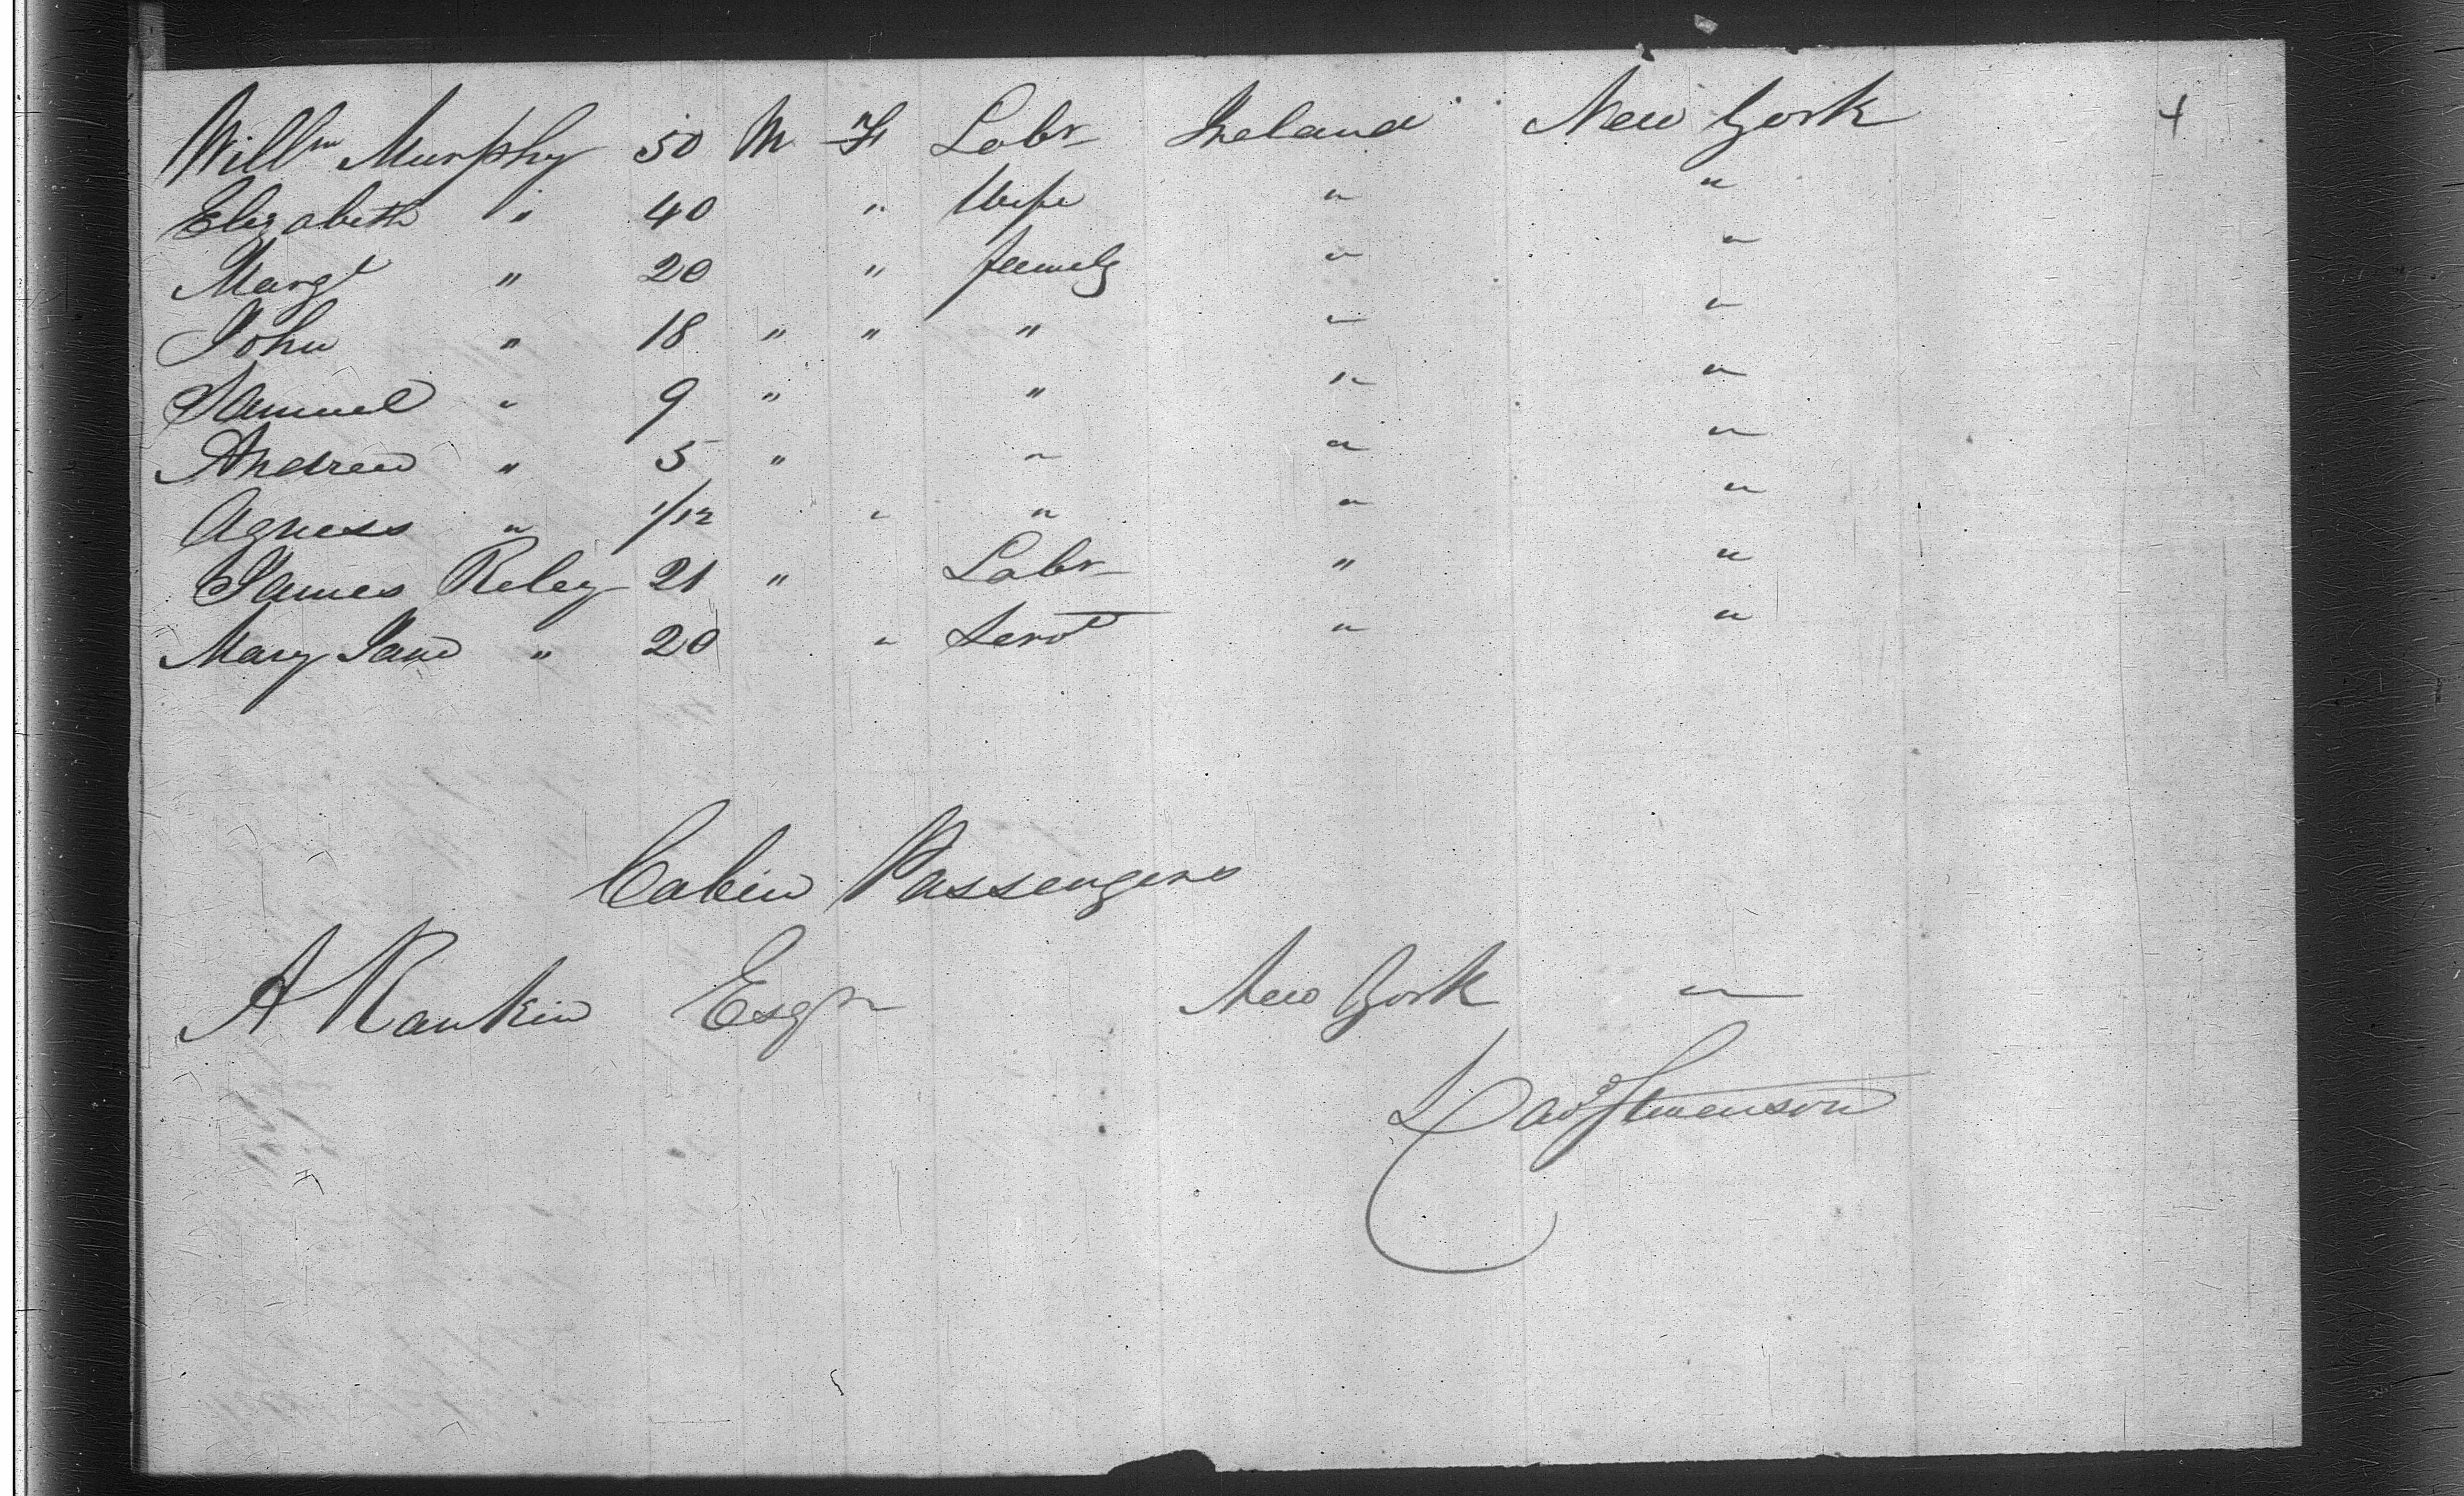 Willm Murphy 50 M F Labr Ireland New York 4
Elizabeth " 40 " Wife " "
Margt " 20 " family " "
John " 18 " " " " "
Samuel " 9 " " " "
Andrew " 5 " " " "
Agness " 1/12 " " " "
James Reley 21 " Labr " "
Mary Jane " 20 " Servt " "
Cabin Passengers
A Rankin Esqr New York "
Davd Stevenson